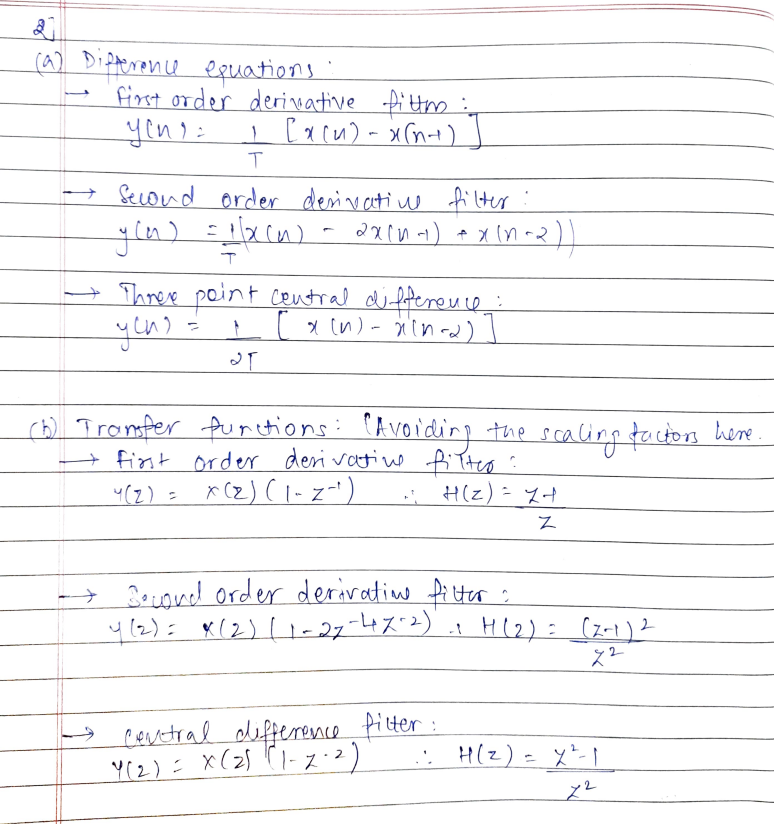 2]
(a) Difference equations :
→ first order derivative filter :
y(n) = 1/T [x(n) - x(n-1)]
→ Second order derivative filter :
y(n) = 1/T (x(n) - 2x(n-1) + x(n-2))
→ Three point central difference :
y(n) = 1/2T [x(n) - x(n-2)]
(b) Transfer functions : (Avoiding the scaling factors here.
→ first order derivative filter :
Y(z) = X(z) (1 - z⁻¹) ∴ H(z) = z-1/z
→ Second order derivative filter :
Y(z) = X(z) (1 - 2z⁻¹ + z⁻²) ∴ H(z) = (z-1)²/z²
→ Central difference filter :
Y(z) = X(z) (1 - z⁻²) ∴ H(z) = z²-1/z²